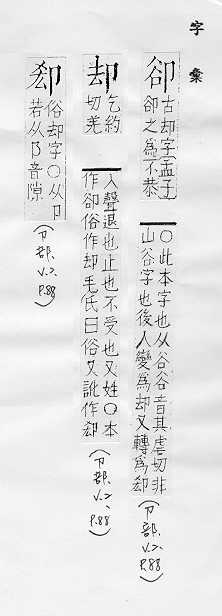 字彙
卻
古却字孟子
卻之為不恭
○此本字也从谷谷音其虐切非
山谷字也後人變為却又轉為
(卩部. V.2. P.88)
却
乞約
切羌
入聲退也止也不受也又姓○本
作卻俗作却毛氏曰俗又訛作
(卩部. V.2. P.88)
俗却字○从卩
若从阝音隙
(卩部. V.2. P.88)